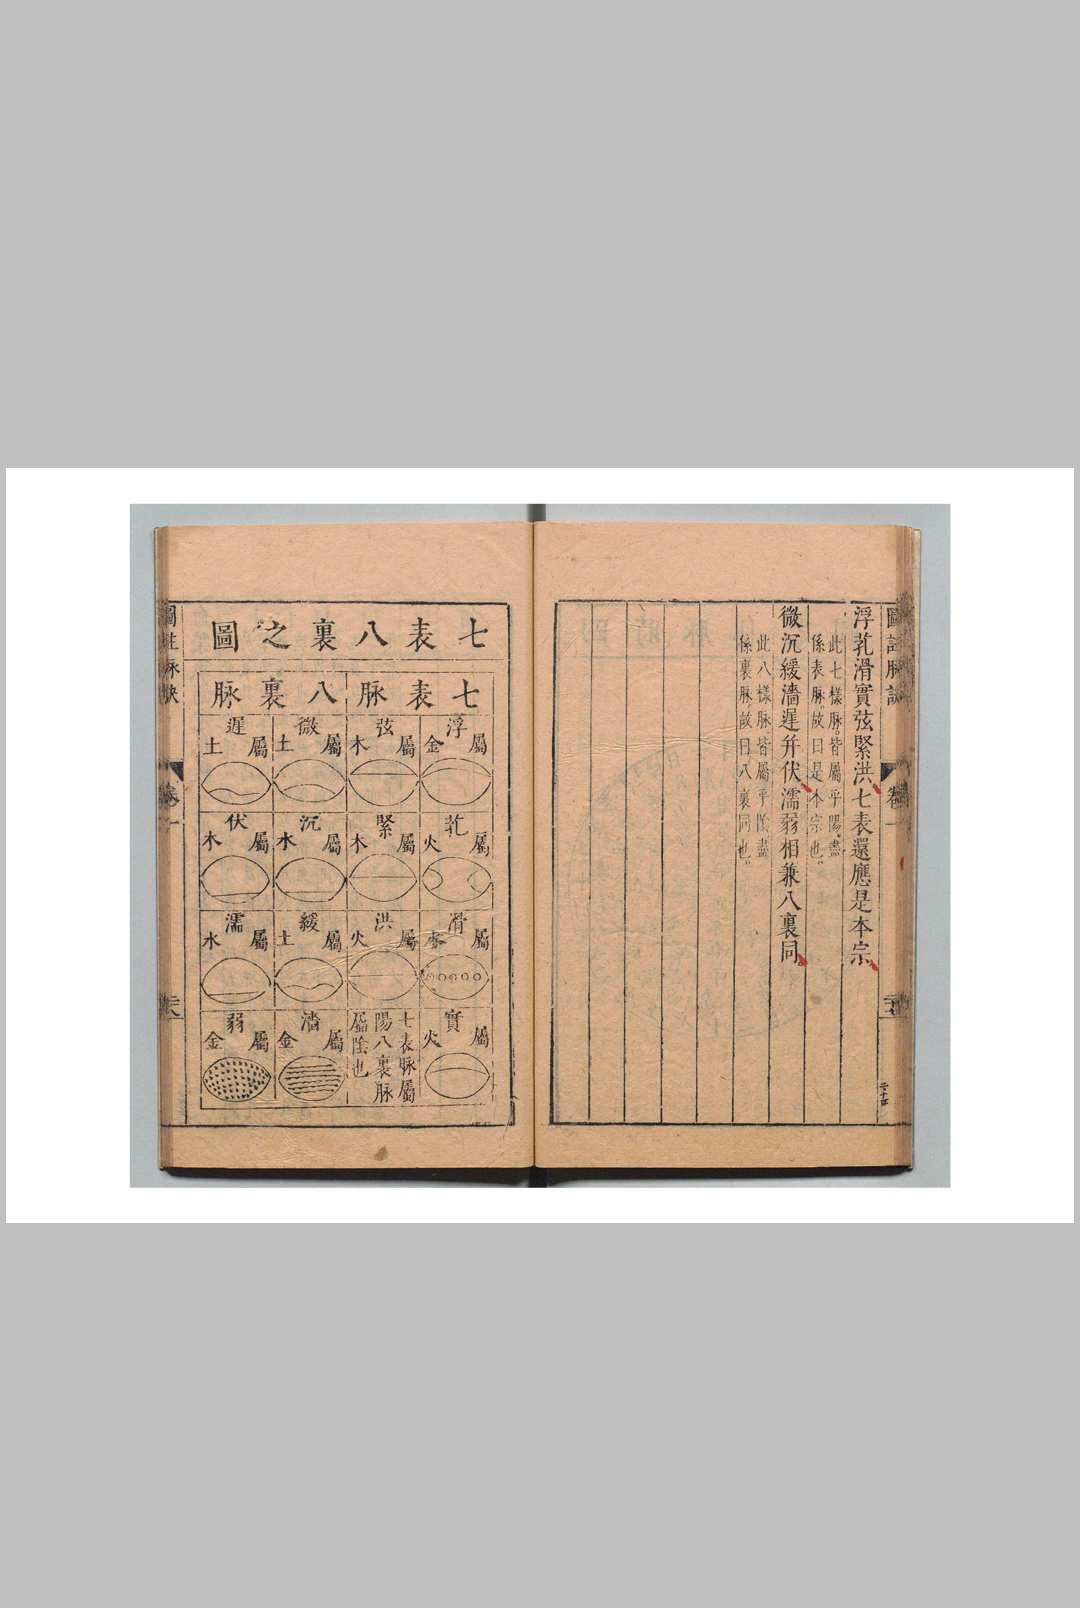 浮芤滑實弦緊洪七表還應是本宗
此七樣脉皆屬乎陽盡
係表脉故曰是本宗也
微沉緩濇遲并伏濡弱相兼八裏同
此八樣脉皆屬乎陰盡
係裏脉故曰八裏同也
二十四
七表八裏之圖
七表脉
八裏脉
浮 屬金
芤 屬火
滑 屬
實 屬火
弦 屬木
緊 屬木
洪 屬火
七表脉屬
陽八裏脉
屬陰也
微 屬土
沉 屬水
緩 屬土
濇 屬金
遲 屬土
伏 屬木
濡 屬水
弱 屬金